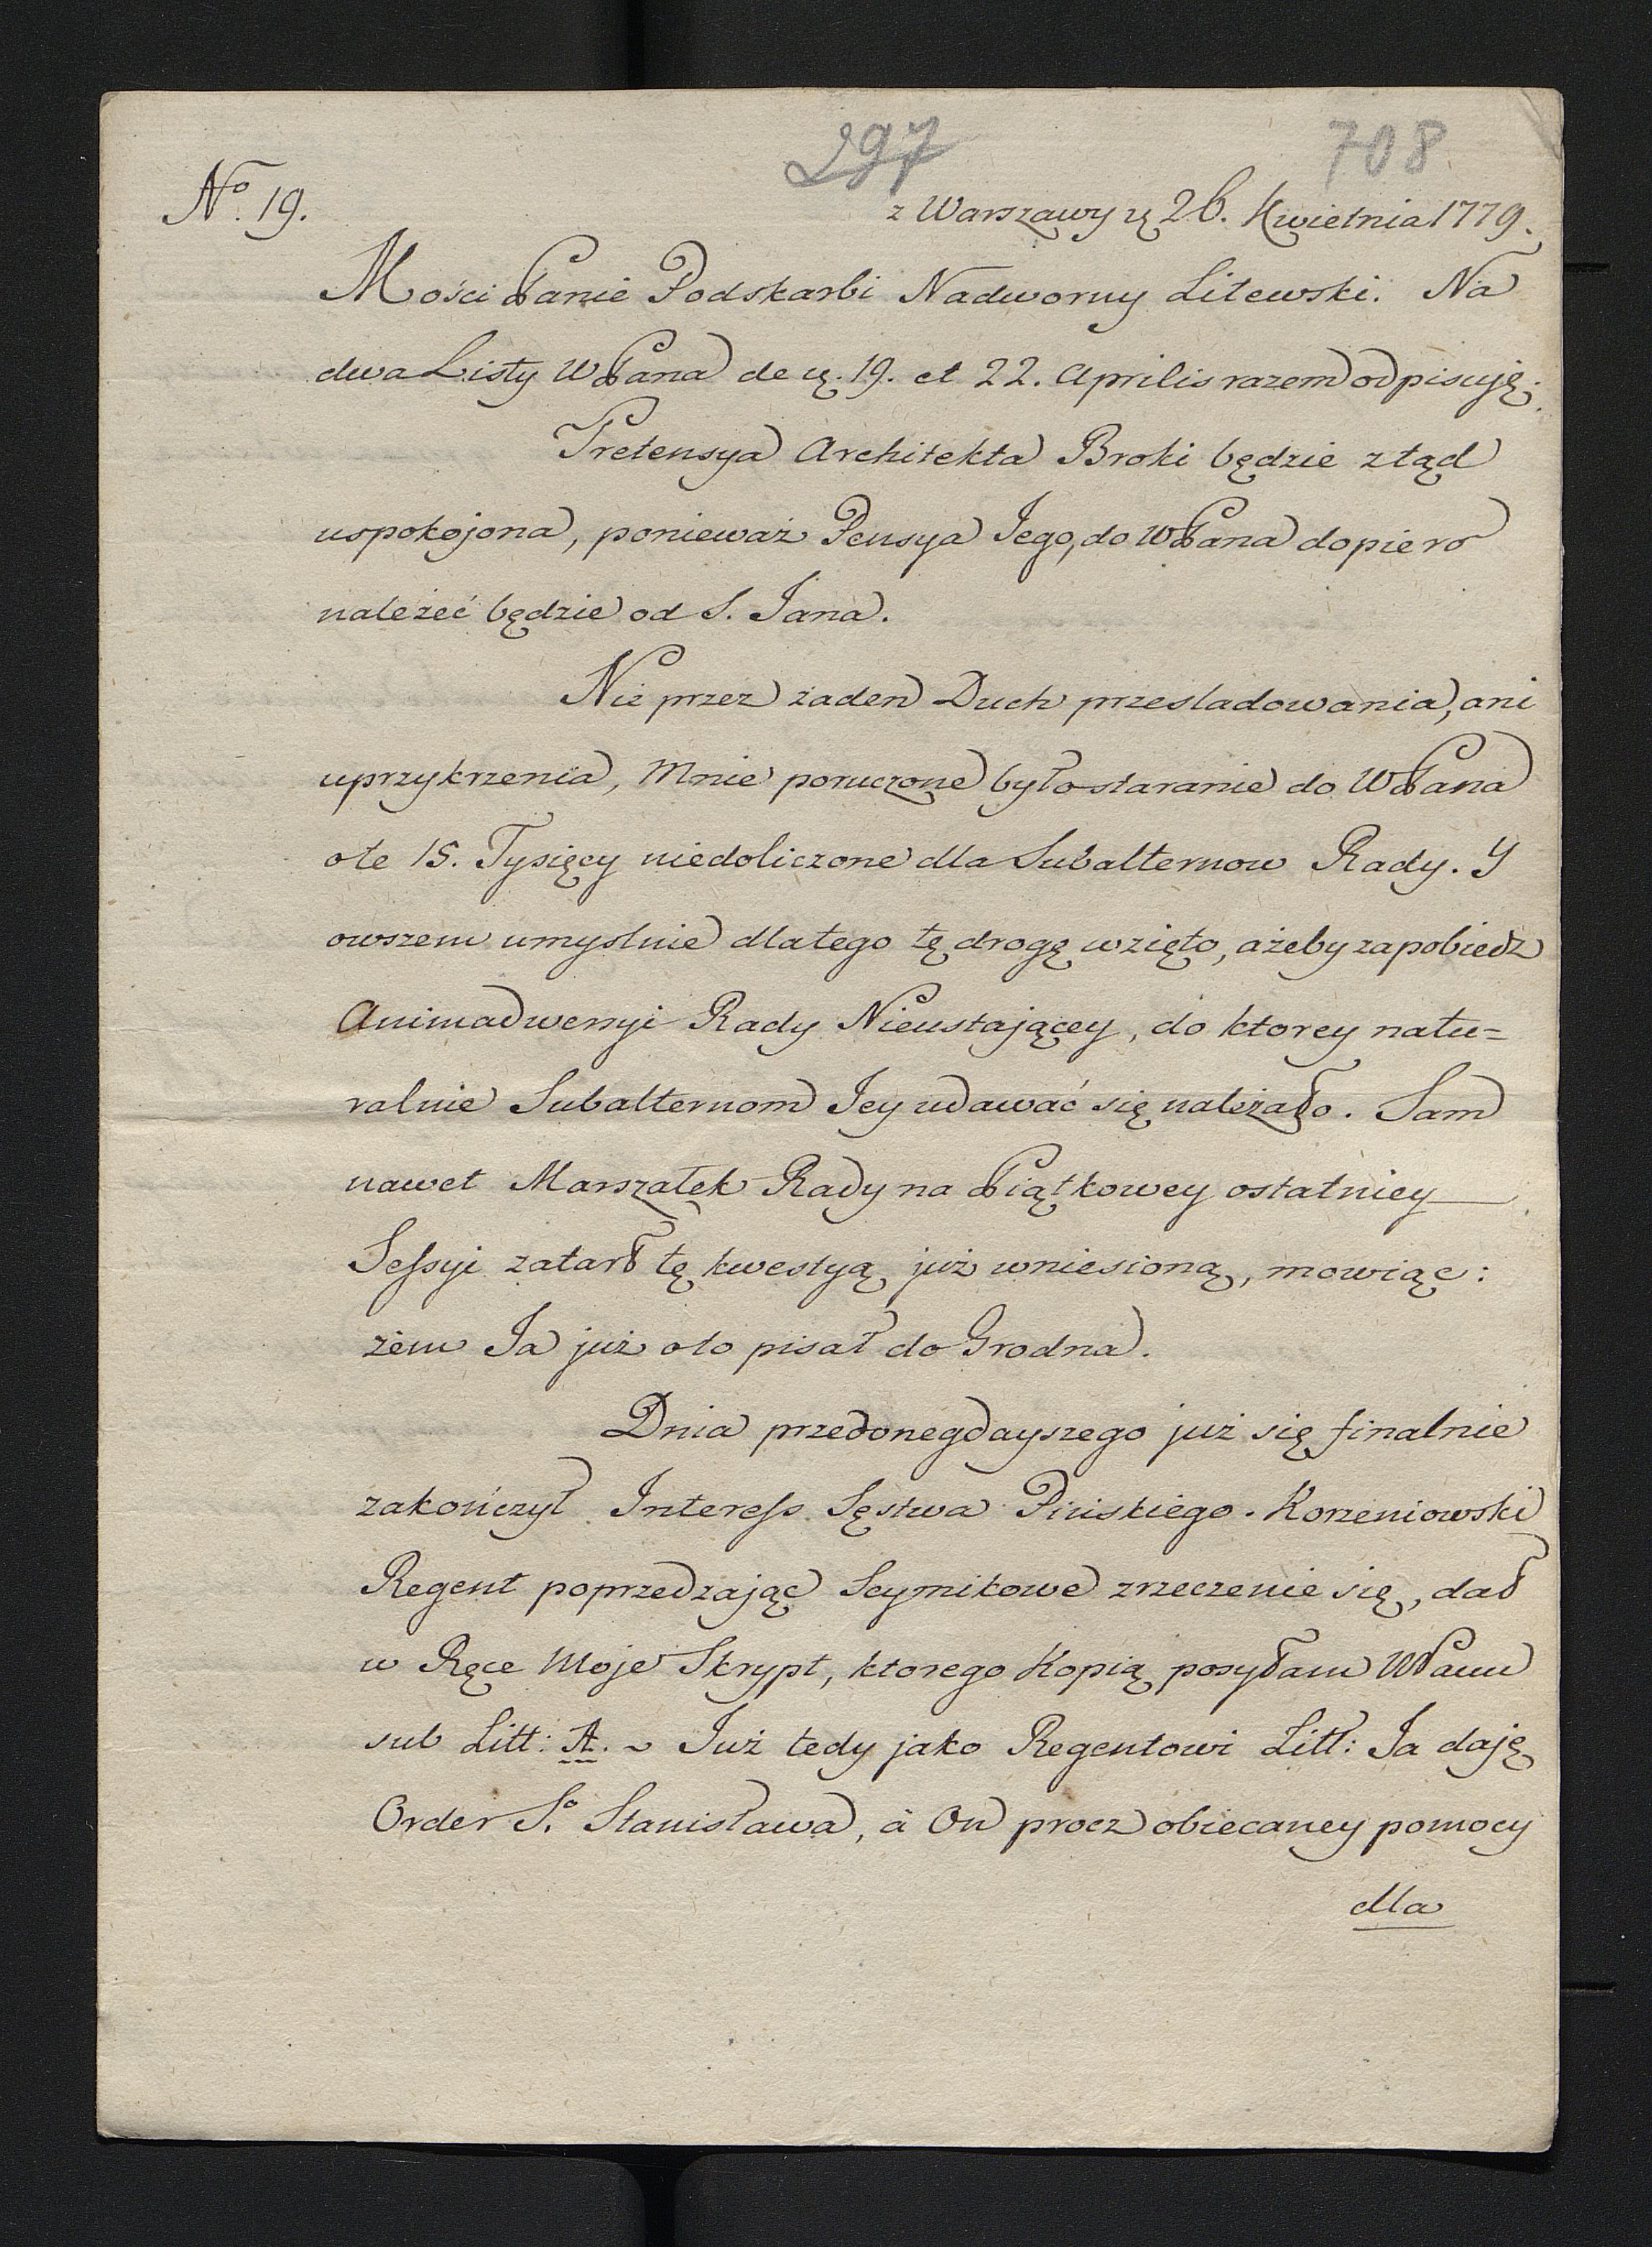 297 708
No. 19. z Warszawy ą 26. Kwietnia 1779.
Mości Panie Podskarbi Nadworny Litewski. Na
dwa Listy WPana de ą. 19. et 22. Aprilis razem odpisuję.
Pretensya Architekta Broki będzie ztąd
uspokojona, ponieważ Pensya Jego, do WPana dopiero
należeć będzie od S. Jana.
Nie przez żaden Duch przesladowania, ani
uprzykrzenia, Mnie poruczone było staranie do WPana
o te 15. Tysięcy niedoliczone dla Subalternow Rady. Y
owszem umyslnie dlatego tę drogę wzięto, ażeby zapobiedz
Animadwersyi Rady Nieustającey, do ktorey natu=
ralnie Subalternom Jey udawać się należało. Sam
nawet Marszałek Rady na Piątkowey ostatniey
Sessyi zatarł tę kwestyą już wniesioną, mowiąc:
żem Ja już o to pisał do Grodna.
Dnia przedonegdayszego już się finalnie
zakończył Interess Sęstwa Pińskiego. Korzeniowski
Regent poprzedzając Seymikowe zrzeczenie się, dał
w Ręce Moje Skrypt, ktorego Kopią posyłam WPanu
sub Litt: A. ~ Już tedy jako Regentowi Litt: Ja daję
Order So. Stanisława, à On procz obiecaney pomocy
dla